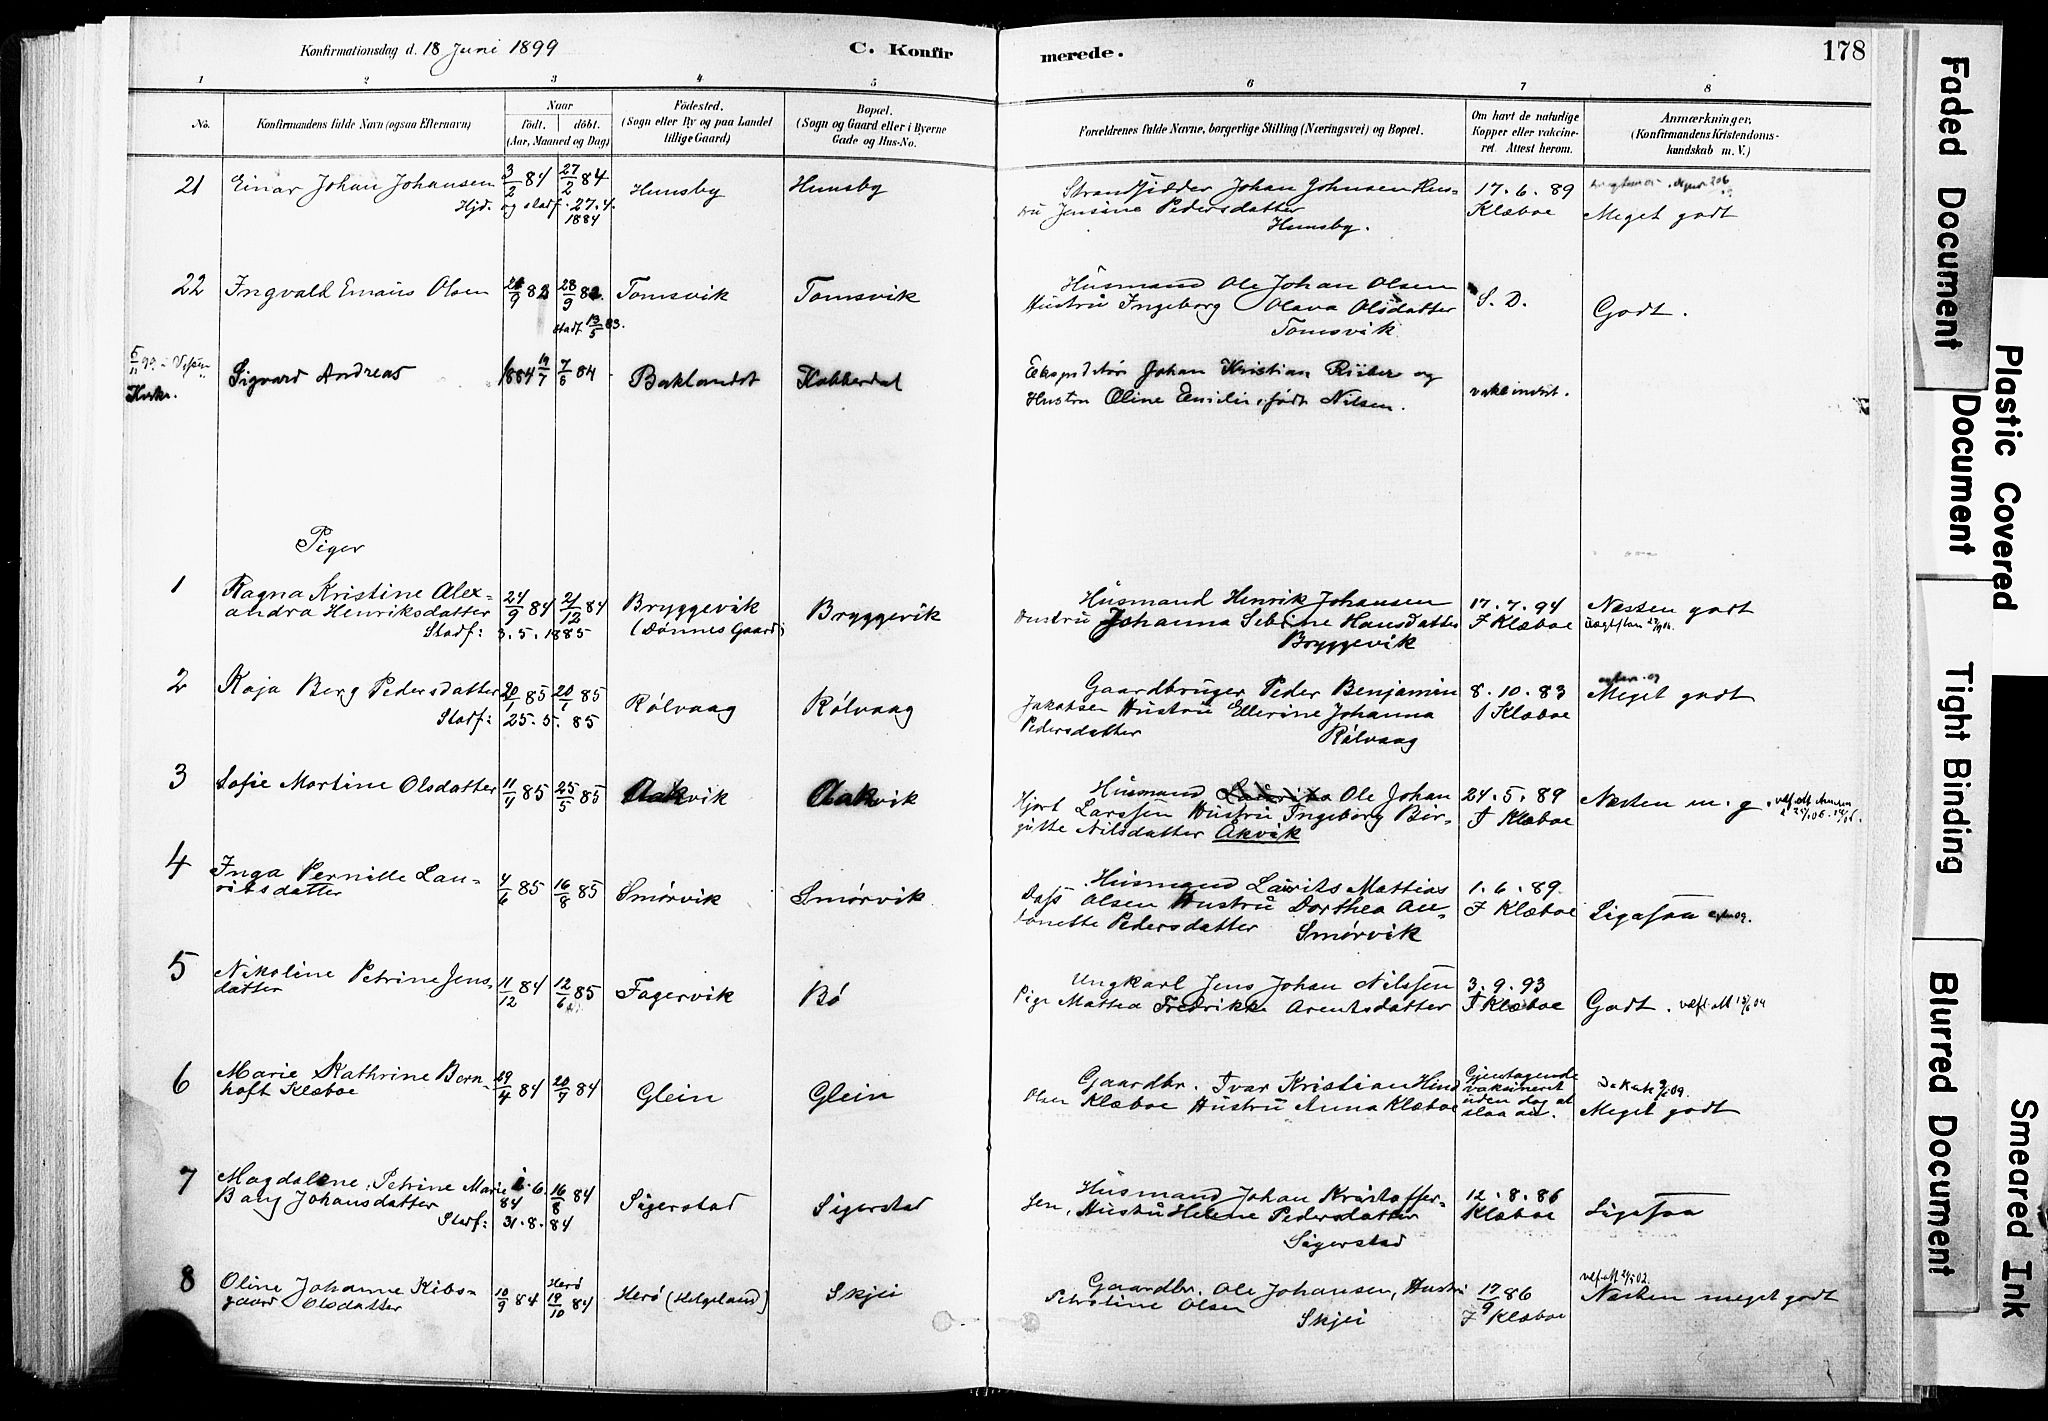 Konfirmationsdag d. 18 Juni 1899
C. Konfir
merede.
178
1 2 3 4 5 6 7 8
No.
Konfirmandens fulde Navn (ogsaa Efternavn)
Naar
født. døbt.
(Aar, Maaned og Dag)
Fødested.
(Sogn eller By og paa Landet
tillige Gaard)
Bopæl.
(Sogn og Gaard eller i Byerne
Gade og Hus-No.
Forældrenes fulde Navne, borgerlige Stilling (Næringsvei) og Bopæl.
Om havt de naturlige
Kopper eller vakcine-
ret. Attest herom.
Anmærkninger.
(Konfirmandens Kristendoms-
kundskab m. V.)
21 Einar Johan Johansen 3/2 84 27/2 84 Hunsby Hunsby
Hjd. og stadf. 27.4.
1884
Strandsidder Johan Johnsen Hus-
tru Jensine Pedersdatter
Hunsby.
17.6.89
Klæboe
Meget godt
22 Ingvald Emaus Olsen 28/9 82 Tomsvik Tomsvik
stadf 13/5 83.
Husmand Ole Johan Olsen
Hustru Ingeborg Olava Olsdatter
Tomsvik
S. D.
Godt.
Sigvard Andreas 1884 19/7 7/6 84 Baklandet
Johan Kristian Riiber og
Hustru Oline Emilie, født Nilsen.
Piger
1 Ragna Kristine Alex-
andra Henriksdatter 24/9 84 21/12 84
Stadf: 3.5.1885
Bryggevik
(Dønnes Gaard)
Bryggevik
Husmand Henrik Johansen
Hustru Johanna Sebine Hansdatter
Bryggevik
17.7.94
F Klæboe
Næsten godt
2 Kaja Berg Pedersdatter 20/1 85 20/1 85
Stadf: 25.5.85
Rølvaag Rølvaag
Gaardbruger Peder Benjamin
Jakobsen Hustru Ellerine Johanna
Pedersdatter Rølvaag
8.10.83
J Klæboe
Meget godt
3 Sofie Martine Olsdatter 11/4 85 25/5 85 Aakvik Aakvik
Husmand Ole Johan
Hjort Larssen Hustru Ingeborg Bir-
gitte Nilsdatter Åkvik
24.5.89
J Klæboe
Næsten m. g.
4 Inga Pernille Lau-
ritsdatter 4/6 85 16/8 85 Smørvik Smørvik
Husmand Laurits Mattias
Dass Olsen Hustru Dorthea An-
tonette Pedersdatter Smørvik
1.6.89.
F Klæboe
Ligesaa
5 Nikoline Petrine Jens-
datter 11/12 84 12/6 85 Fagervik Bø
Ungkarl Jens Johan Nilssen
Pige Mattea Fredrikke Arentsdatter
3.9.93
J Klæboe
Godt.
6 Marie Kathrine Born-
hoft Klæboe 29/4 84 20/7 84 Glein Glein
Gaardbr. Ivar Kristian Hind
Olsen Klæboe Hustru Anna Klæboe
Gjentagende
vaksineret
uden dog at
slaa an.
Meget godt
7 Magdalene Petrine Marie
Bang Johansdatter 84 16/8 84
Stadf: 31.8.84
Sigerstad Sigerstad
Husmand Johan Kristoffer-
sen, Hustru Helene Pedersdatter
Sigerstad
12.8.86
Klæboe
Ligesaa
8 Oline Johanne Kibs-
gaard Olsdatter 10/9 84 Herø 19/10 84
Herø (Helgeland) Skjei
Gaardbr. Ole Johansen, Hustru
Petroline Olsen
Skjei
17/9 86
F Klæboe
Næsten meget godt
Faded Document
Plastic Covered
Document
Tight Binding
Blurred Document
Smeared Ink